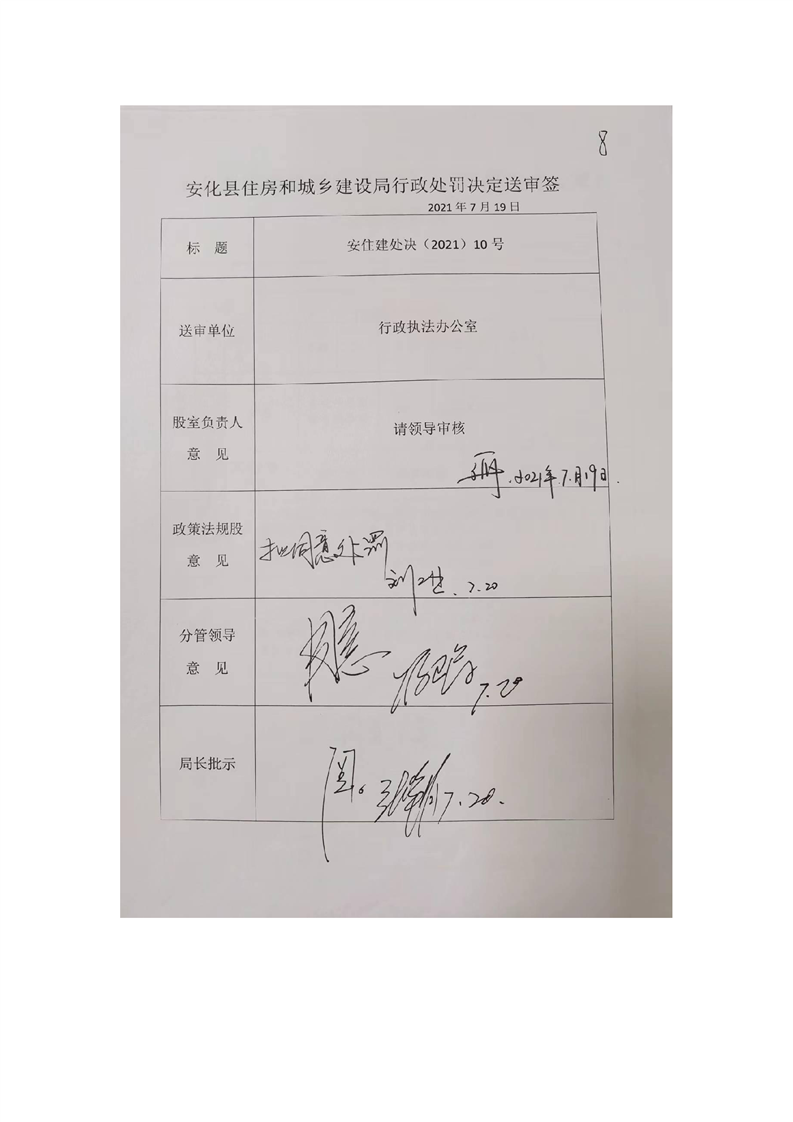 8
安化县住房和城乡建设局行政处罚决定送审签
2021年7月19日
标 题
安住建处决（2021）10号
送审单位
行政执法办公室
股室负责人
意 见
请领导审核
2021年.7.月19日.
政策法规股
意 见
拟同意处罚
刘 7.20
分管领导
意 见
同意
7.20
局长批示
7.20.